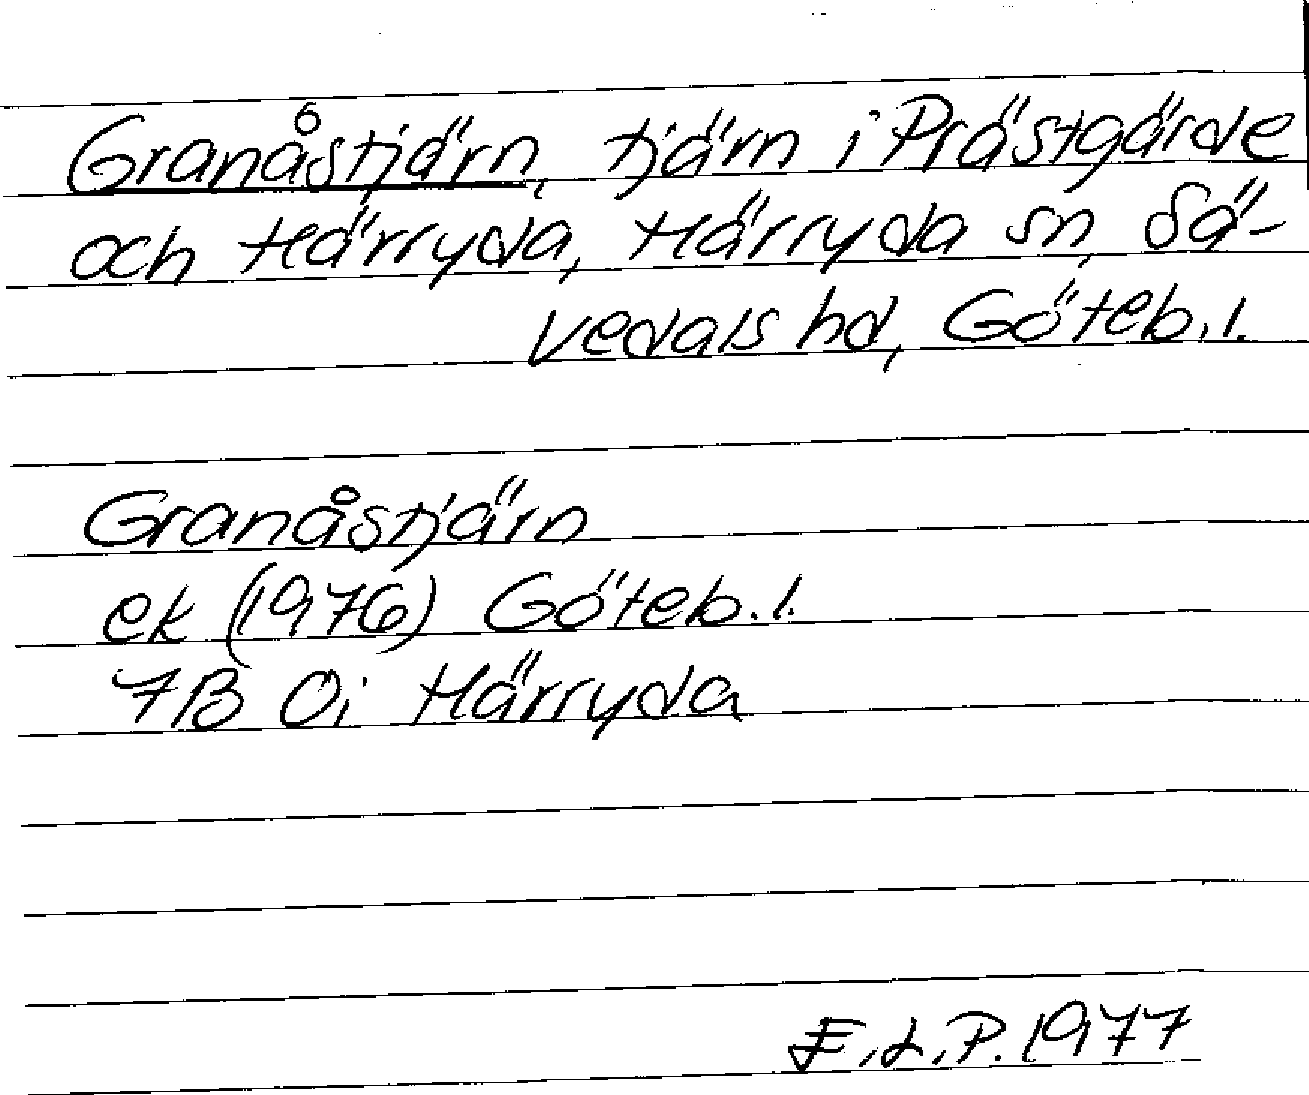 Granåstjärn, tjärn i Prästgärde
och Härryda, Härryda sn, Sä-
vedals hd, Göteb.l.
Granåstjärn
ek (1976) Göteb.l.
7B 0i Härryda
E.L.P. 1977